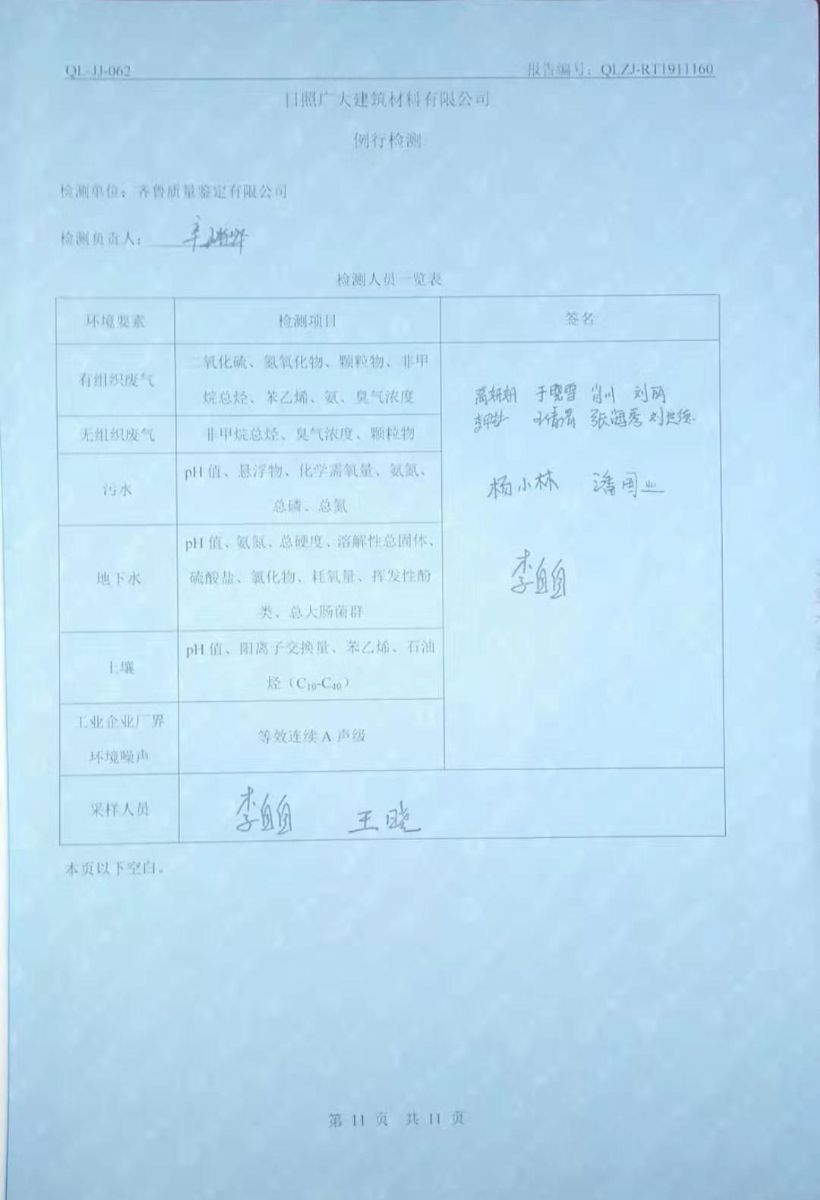 QL-JJ-062 报告编号：QLZJ-RT1911160
日照广大建筑材料有限公司
例行检测
检测单位：齐鲁质量鉴定有限公司
检测负责人：
检测人员一览表
环境要素 检测项目 签名
有组织废气
二氧化硫、氮氧化物、颗粒物、非甲
烷总烃、苯乙烯、氨、臭气浓度
于雪雪 肖川 刘丽
无组织废气 非甲烷总烃、臭气浓度、颗粒物
张海彦
污水
pH 值、悬浮物、化学需氧量、氨氮、
总磷、总氮
杨小林 潘国业
地下水
pH 值、氨氮、总硬度、溶解性总固体、
硫酸盐、氯化物、耗氧量、挥发性酚
类、总大肠菌群
李自自
土壤
pH 值、阳离子交换量、苯乙烯、石油
烃（C10-C40）
工业企业厂界
环境噪声
等效连续 A 声级
采样人员 李自自 王晓
本页以下空白。
第 11 页 共 11 页